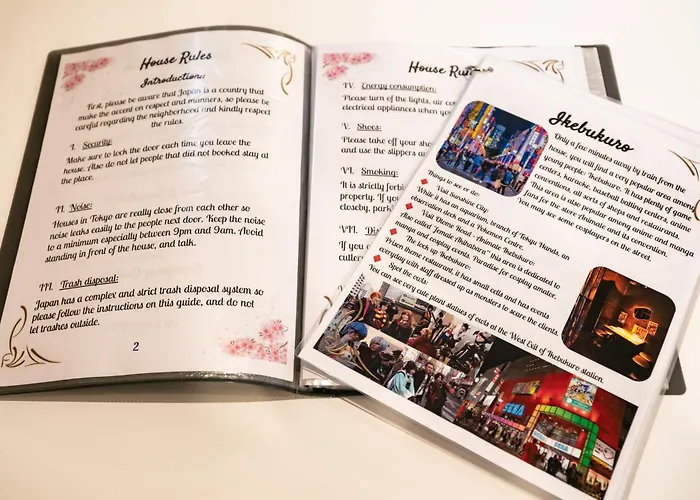 House Rules
Introduction:
First, please be aware that Japan is a country that
make the accent on respect and manners, so please be
careful regarding the neighborhood and kindly respect
the rules.
I. Security:
Make sure to lock the door each time you leave the
house. Also do not let people that did not booked stay at
the place.
II. Noise:
Houses in Tokyo are really close from each other so
noise leaks easily to the people next door. Keep the noise
to a minimum especially between 9pm and 9am. Avoid
standing in front of the house, and talk.
III. Trash disposal:
Japan has a complex and strict trash disposal system so
please follow the instructions on this guide, and do not
let trashes outside.
2
House
IV. Energy consumption:
Please turn of the lights, air
electrical appliances when
V. Shoes:
Please take off your
and use the slippers
VI. Smoking:
It is strictly
property. If
closeby,
VII.
If you
Ikebukuro
Only a few minutes away by train from the
house, you will find a very popular area among
young people: Ikebukuro. It has plenty of game
centers, karaoke, baseball batting centers, anime
conventions, all sorts of shops and restaurants.
This area is also popular among anime and manga
fans for the store Animate and its convention.
You may see some cosplayers on the street.
Things to see or do:
Visit Sunshine City:
While it has an aquarium, branch of Tokyu Hands, an
observation deck and a Pokemon Centre.
Visit Otome Road - Animate Ikebukuro:
Also called "female Akihabara" this area is dedicated to
manga and cosplay events. Paradise for cosplay amator.
The lock up Ikebukuro:
Prison theme restaurant, it has small cells and has events
everyday with staff dressed up as monsters to scare the clients.
Spot the owls:
You can see very cute plant statues of owls at the West Exit of Ikebukuro station.
SEGA
SEGA